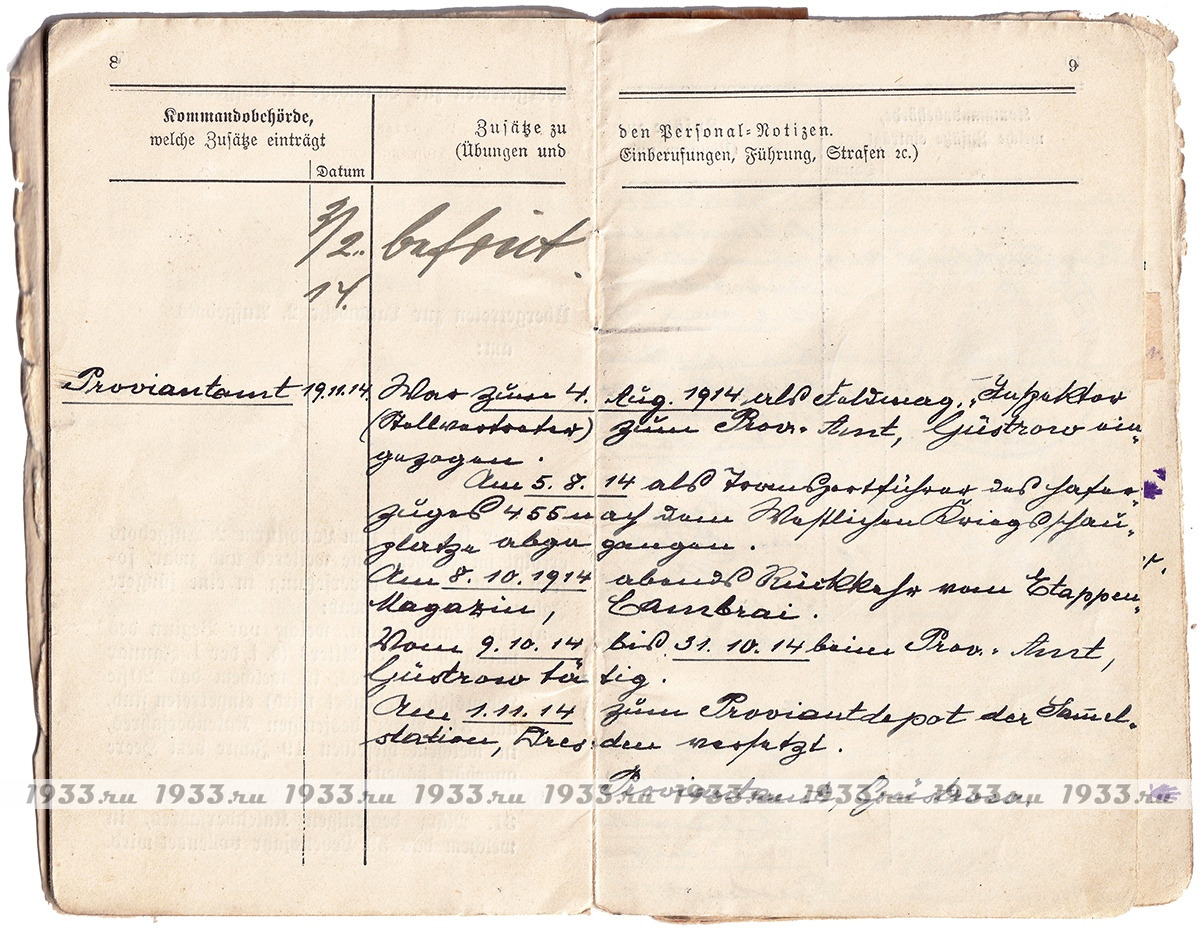 8
9
Kommandobehörde,
welche Zusätze einträgt
Datum
Zusätze zu den Personal-Notizen.
(Übungen und Einberufungen, Führung, Strafen ꝛc.)
3/2. befreit.
14.
Proviantamt 19.11.14. War zum 4. Aug. 1914 als Feldmag. Inspektor
(Stellvertreter) zum Prov. Amt, Güstrow ein„
gezogen.
Am 5. 8. 14 als Transportführer des Hafer„
zuges 455 nach dem Westlichen Kriegsschau„
platze abgegangen.
Am 8. 10. 1914 abends Rückkehr vom Etappen„
Magazin, Cambrai.
Vom 9. 10. 14 bis 31. 10. 14 beim Prov. Amt,
Güstrow tätig.
Am 1. 11. 14 zum Proviantdepot der Sam̅el„
station, Dresden versetzt.
Proviantamt, Güstrow.
1933.ru 1933.ru 1933.ru 1933.ru 1933.ru 1933.ru 1933.ru 1933.ru 1933.ru